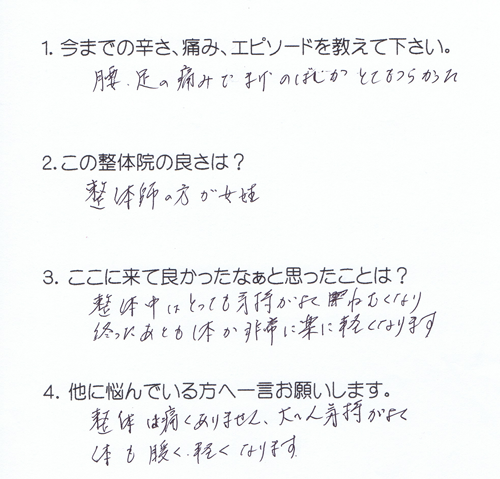 1. 今までの辛さ、痛み、エピソードを教えて下さい。
腰、足の痛みでまげのばしがとてもつらかった
2.この整体院の良さは？
整体師の方が女性
3. ここに来て良かったなぁと思ったことは？
整体中はとっても気持がよくねむくなり
終ったあとも体が非常に楽に軽くなります
4. 他に悩んでいる方へ一言お願いします。
整体は痛くありません、大へん気持がよく
体も暖く、軽くなります